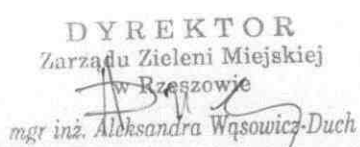 DYREKTOR
Zarządu Zieleni Miejskiej
w Rzeszowie
mgr inż. Aleksandra Wąsowicz-Duch